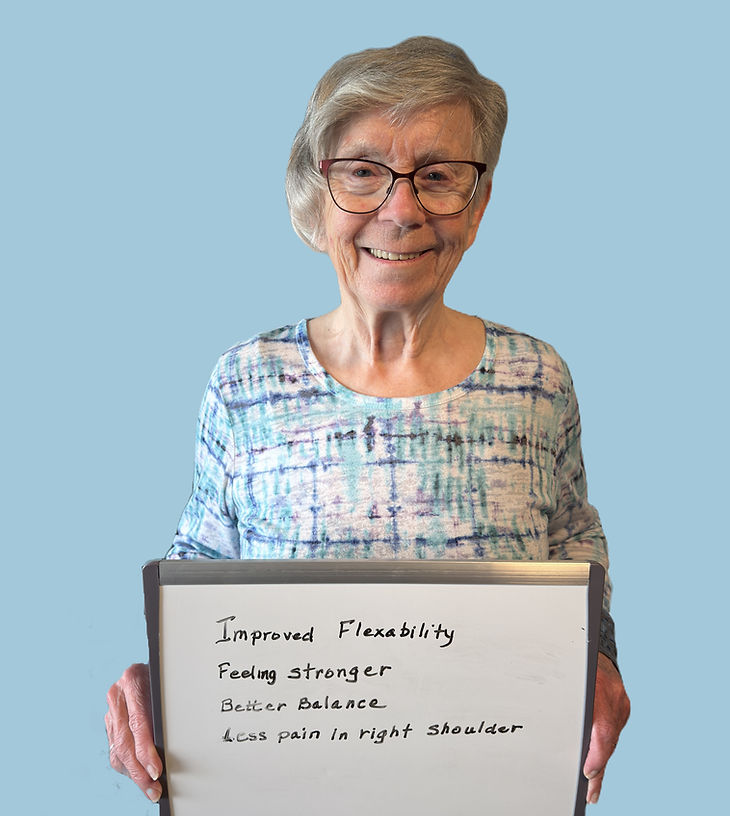 Improved Flexability
Feeling stronger
Better Balance
Less pain in right shoulder